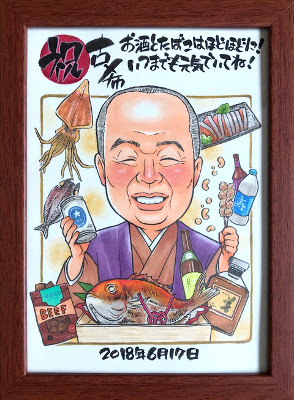 祝
古希
お酒とたばこはほどほどに!
いつまでも元気でいてね!
寿
BEEF
2018年6月17日